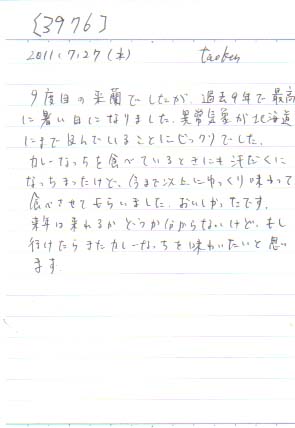 {3976}
2011.7.27(水) taoken
9度目の来蘭でしたが、過去9年で最高
に暑い日になりました。異常気象が北海道
にまで及んでいることにビックリでした。
カレーなっちを食べているときにも汗だくに
なっちまったけど、今まで以上にゆっくり味わって
食べさせてもらいました。おいしかったです。
来年は来れるかどうか分からないけど、もし
行けたらまたカレーなっちを味わいたいと思い
ます。